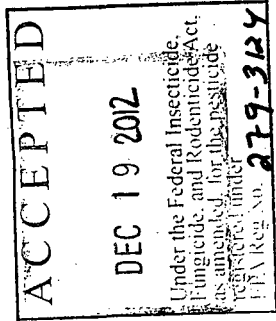 ACCEPTED
DEC 19 2012
Under the Federal Insecticide,
Fungicide, and Rodenticide Act,
as amended, for the pesticide
registered under
EPA Reg. No. 279-3124